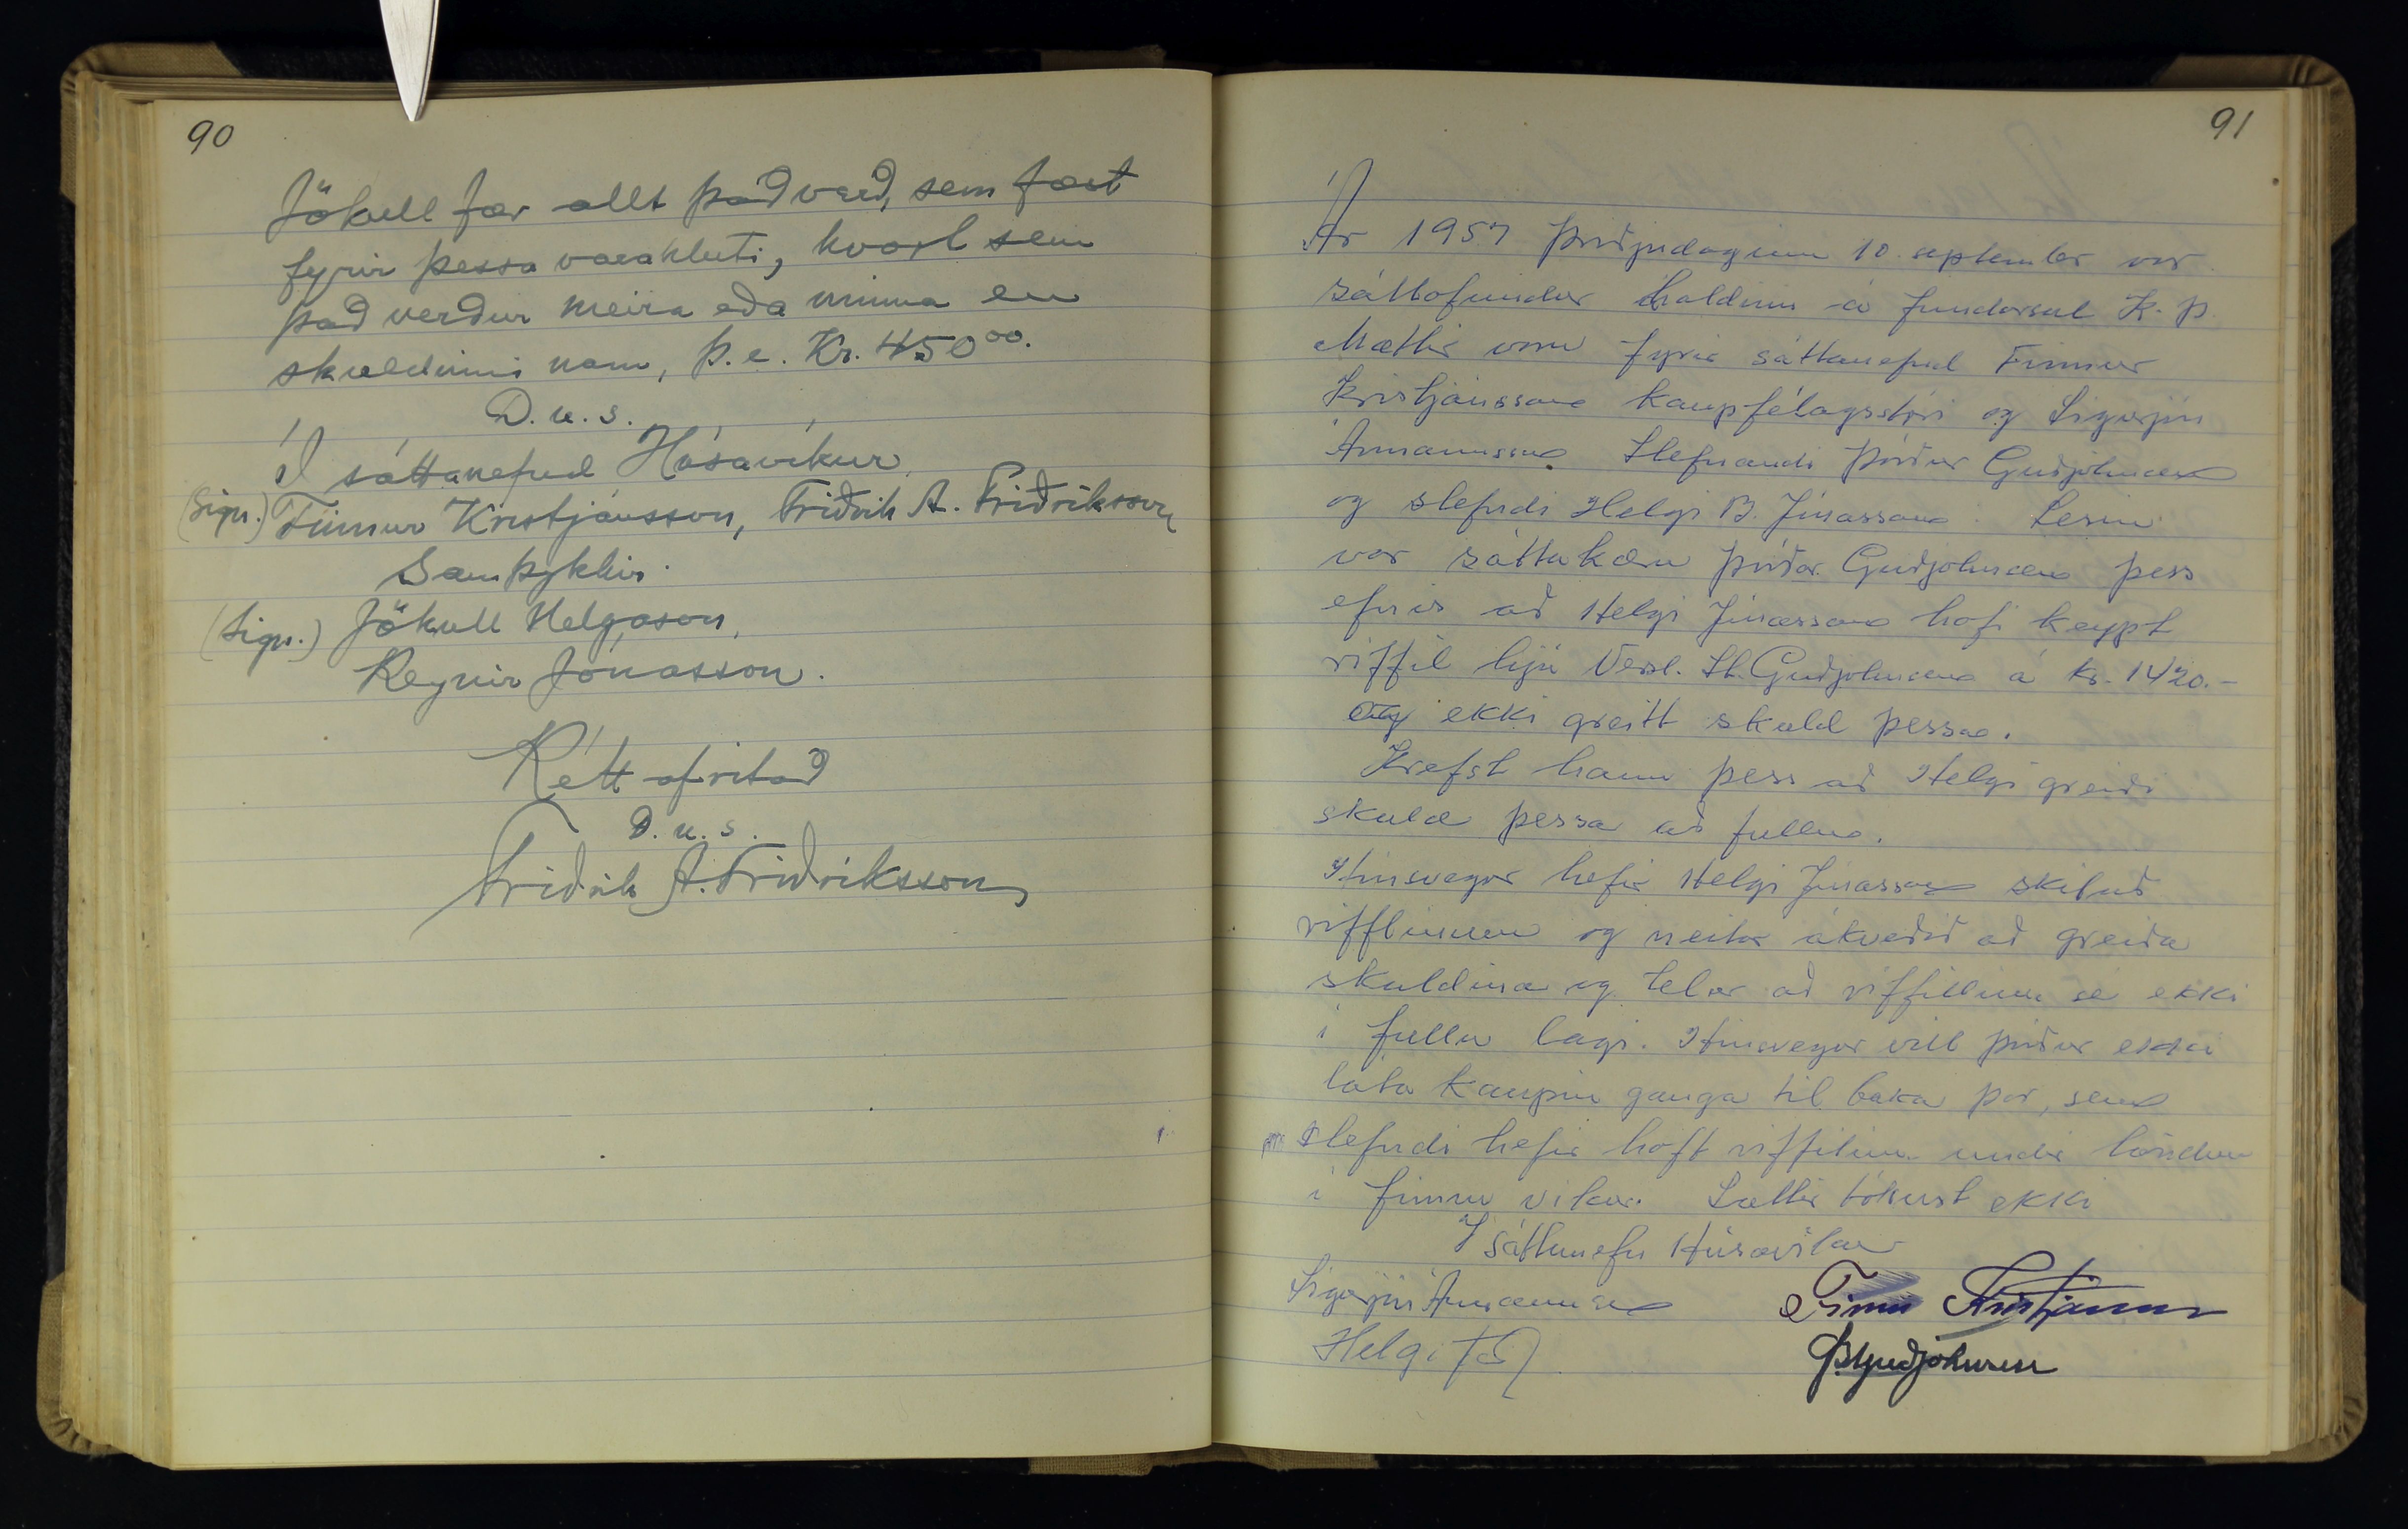 90
Jökull fær allt það verð, sem fæst
fyrir þessa varahluti, hvort sem
það verður meira eða minna en
skuldinni nam, þ.e. Kr. 450⁰⁰.
D.u.s.
Í sáttanefnd Húsavíkur
(Sign.) Finnur Kristjánsson, Friðrik A. Friðriksson
Samþykkir.
(Sign.) Jökull Helgason,
Reynir Jónasson.
Rétt afritað
D.u.s.
Friðrik A. Friðriksson
91
Ár 1957 þriðjudaginn 10. september var
sáttafundur haldinn á fundarsal K.Þ.
Mættir voru fyrir sáttanefnd Finnur
Kristjánsson kaupfélagsstjóri og Sigurjón
Ármannsson. Stefnandi Þórður Guðjohnsen
og stefndi Helgi B. Jónasson. Lesin
var sáttakæra Þórðar Guðjohnsen þess
efnis að Helgi Jónasson hafi keypt
riffil hjá Verzl. St. Guðjohnsen á kr. 1420.-
og ekki greitt skuld þessa.
Krefst hann þess að Helgi greiði
skuld þessa að fullu.
Hinsvegar hefir Helgi Jónasson skilað
rifflinum og neitar ákveðið að greiða
skuldina og telur að riffillinn sé ekki
í fullu lagi. Hinsvegar vill Þórður ekki
láta kaupin ganga til baka þar, sem
stefndi hefir haft riffilinn undir höndum
í fimm vikur. Sættir tókust ekki
Í sáttanefn Húsavíkur
Sigurjón Ármannsson Finnur Kristjánsson
Helgi Þ Guðjohnsen